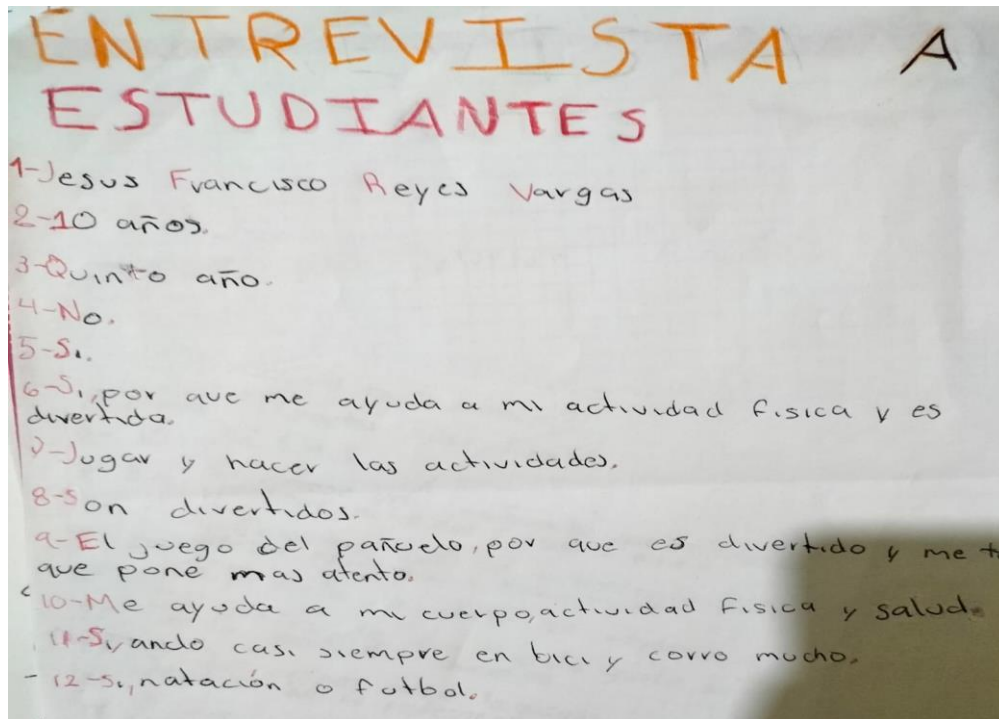 ENTREVISTA A
ESTUDIANTES
1-Jesus Francisco Reyes Vargas
2-10 años.
3-Quinto año.
4-No.
5-Si.
6-Si, por que me ayuda a mi actividad fisica y es
divertida.
7-Jugar y hacer las actividades.
8-son divertidos.
9-El juego del pañuelo, por que es divertido y me
que pone mas atento.
10-Me ayuda a mi cuerpo, actividad fisica y salud.
11-Si, ando casi siempre en bici y corro mucho.
12-Si, natación o futbol.